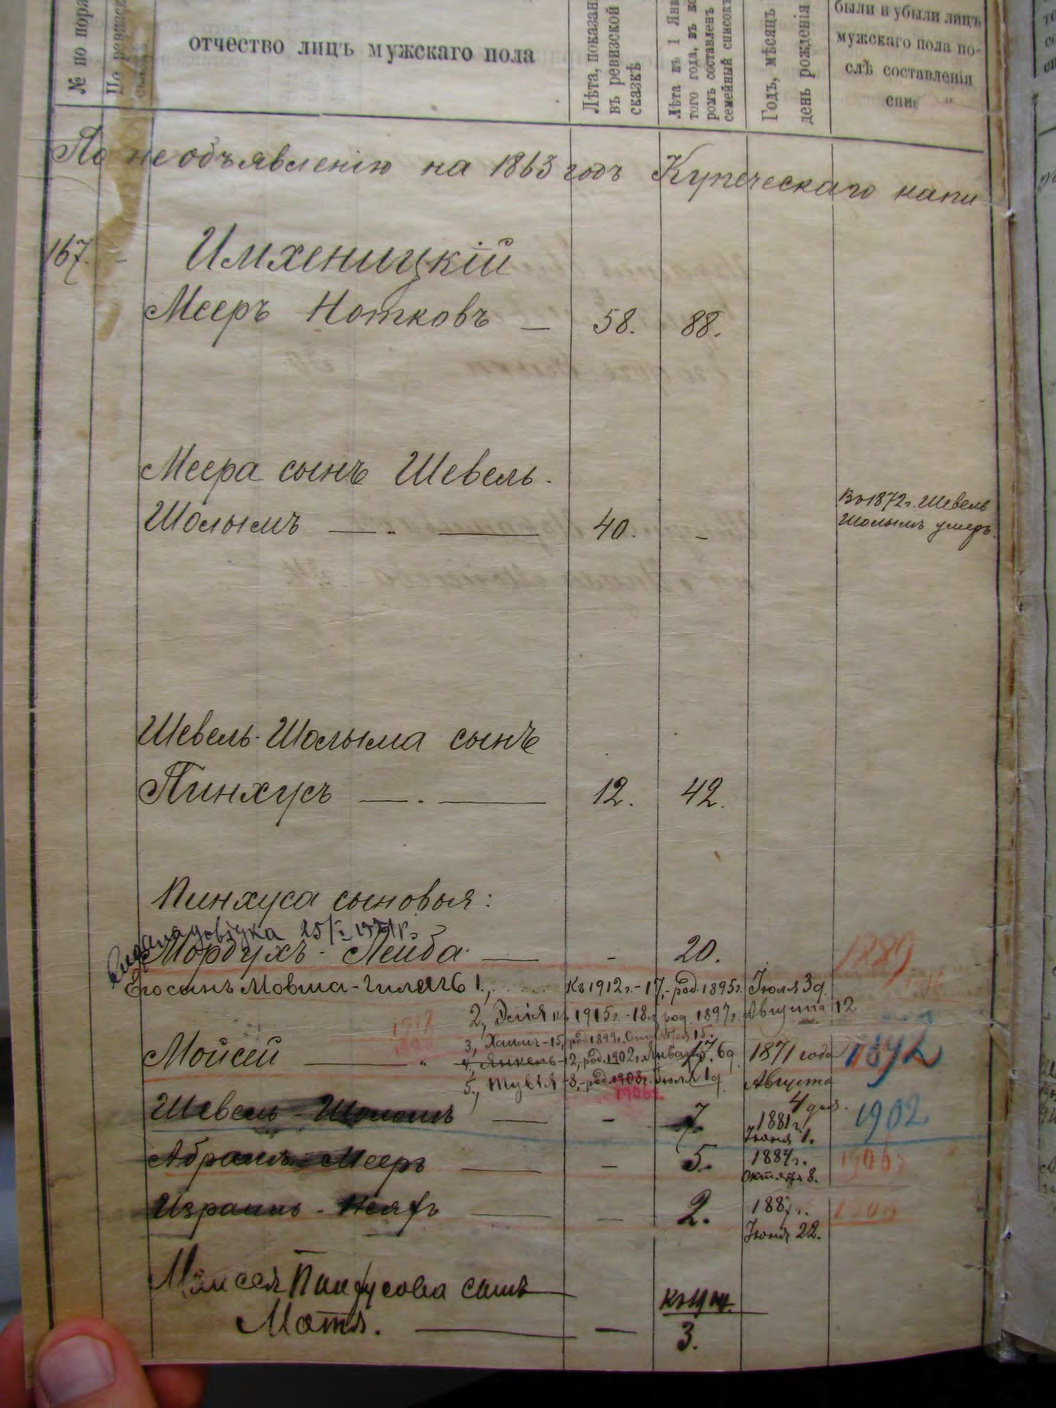 № по пора
отчество лицъ мужскаго пола
Лѣта, показан
въ ревизской
сказкѣ
Лѣта къ 1 Янв
того года, въ ко
ромъ составленъ
семейный списокъ
Годъ, мѣсяцъ
день рожденія
были и убыли лицъ
мужскаго пола по-
слѣ составленія
спис
По необъявленію на 1863 годъ Купеческаго капи
167. Имхеницкій
Мееръ Нотковъ — 58. 88.
Меера сынъ Шевель-
Шолымъ — . — 40. -
Въ 1872 г. Шевель
Шолымъ умеръ.
Шевель-Шолыма сынъ
Пинхусъ — . — 12. 42.
Пинхуса сыновья:
Видана довідка 25/I
Мордухъ-Лейба — - 20. 1889
Его сынъ Мовша- 1., къ 1912 г. - 17, - род. 1895 г. Іюля 3 д.
2, къ 1915 г. - 18. род. 1897. Августа 12
3, - 15,
Мойсей — " 17. 1871 года 1892
4, Янкель - 12, род. 1902 г. Января 6 д.
5., Тувія - 3, - род. 1903 г. Іюля 1 д.
Августа
4 дня.
Шевель-Шолымъ — - 7. 1881 г. 1902
Іюня 1.
Абрамъ-Мееръ — - 5. 1884 г.
Октября 8.
Израиль- — - 2. 188 г.
Іюня 22.
Мойсея Пинхусова сынъ
Мотя. — - 3.